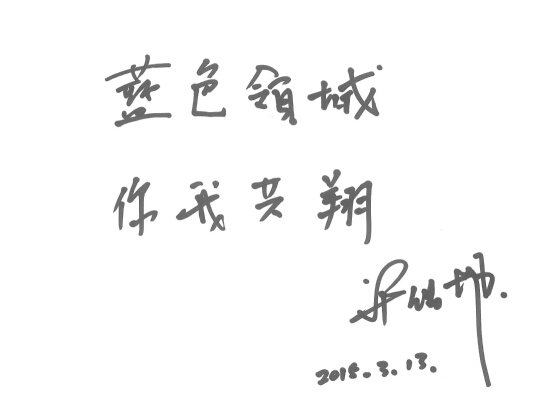 藍色領域
你我共翔
2015.3.13.